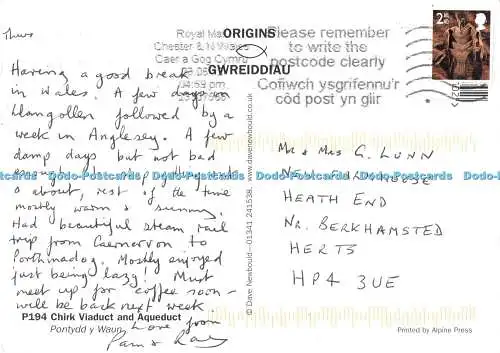 Thurs
Having a good break
in Wales. A few days in
Llangollen followed by a
week in Anglesey. A few
damp days but not bad
enough to stop getting out
& about, rest of the time
mostly warm & sunny.
Had beautiful steam rail
trip from Caernarvon to
Porthmadog. Mostly enjoyed
just being lazy! Must
meet up for coffee soon –
will be back next week.
Love from
Pam &
P194 Chirk Viaduct and Aqueduct
Pontydd y Waun
ORIGINS
GWREIDDIAU
Royal Mail
Chester & N Wales
Caer a Gog Cymru
04:59 pm
Please remember
to write the
postcode clearly
Cofiwch ysgrifennu'r
côd post yn glir
2nd
© Dave Newbould – 01341 241538. www.davenewbould.co.uk
MR & MRS G. LUNN
HEATH END
NR. BERKHAMSTED
HERTS
HP4 3UE
Printed by Alpine Press
Dodo-Postcards Dodo-Postcards Dodo-Postcards Dodo-Postcards Dodo-Postcards